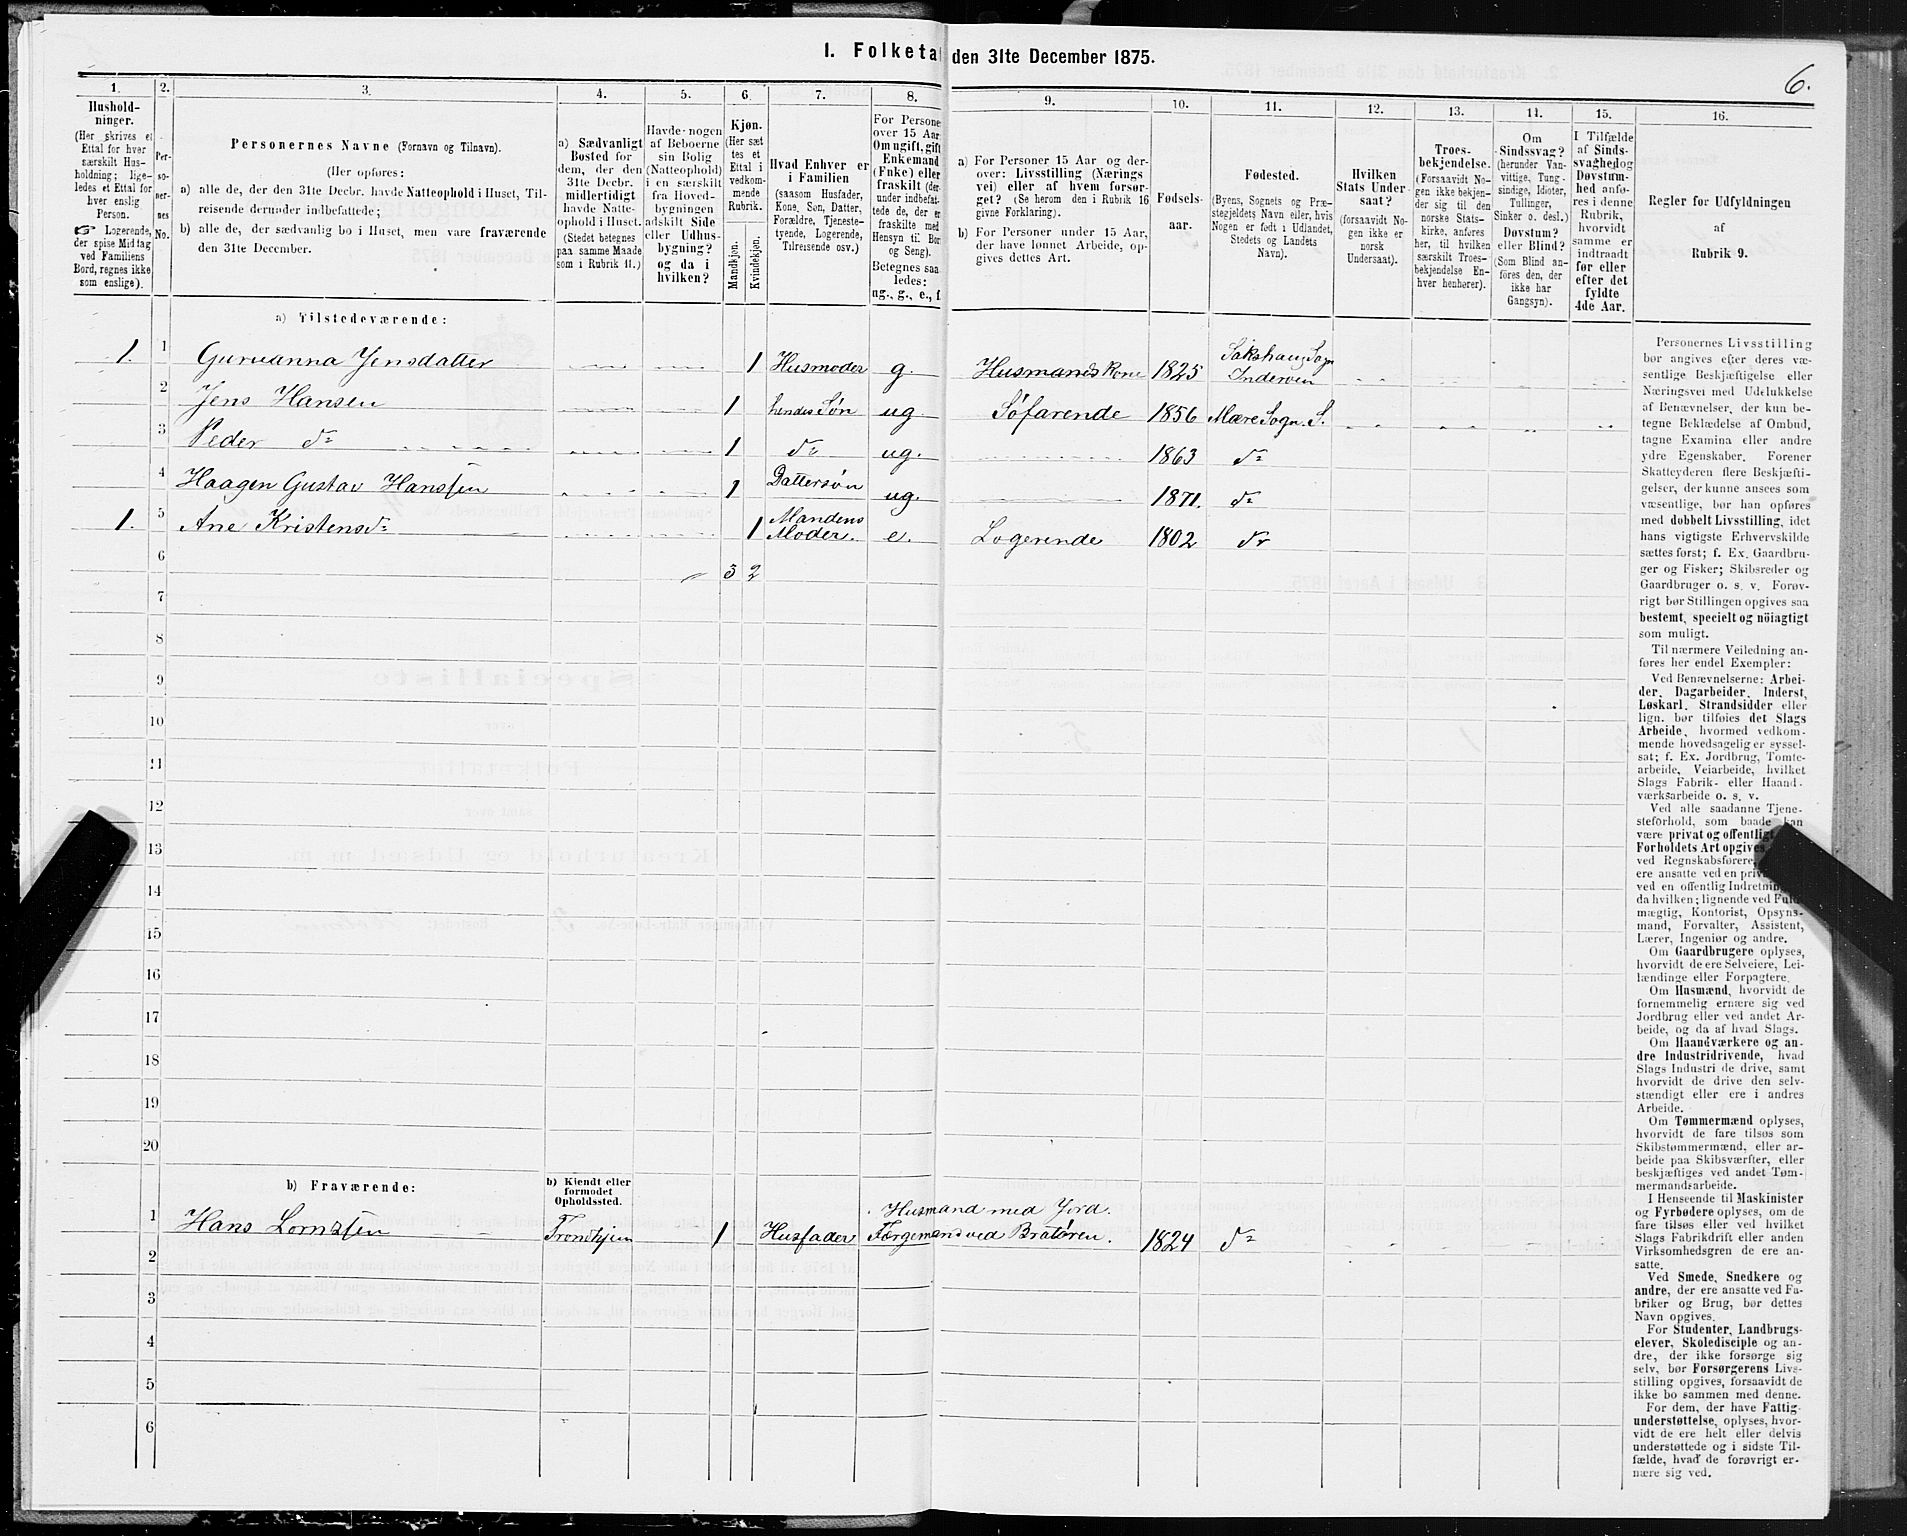 1. Folketal den 31te December 1875.
6.
1. 2. 3. 4. 5. 6. 7. 8. 9. 10. 11. 12. 13. 14. 15. 16.
Hushold-
ninger.
(Her skrives et
Ettal for hver
særskilt Hus-
holdning; lige-
ledes et Ettal for
hver enslig
Person.
☞ Logerende,
der spise Middag
ved Familiens
Bord, regnes ikke
som enslige).
Per-
so-
ner-
nes
No.
Personernes Navne (Fornavn og Tilnavn).
(Her opføres:
a) alle de, der den 31te Decbr. havde Natteophold i Huset, Til-
reisende derunder indbefattede;
b) alle de, der sædvanlig bo i Huset, men vare fraværende
den 31te December.
a) Sædvanligt
Bosted for
dem, der den
31te Decbr.
midlertidigt
havde Natte-
ophold i Huset.
(Stedet betegnes
paa samme Maade
som i Rubrik 11.)
Havde nogen
af Beboerne
sin Bolig
(Natteophold)
i en særskilt
fra Hoved-
bygningen
adskilt Side
eller Udhus-
bygning?
og da i
hvilken?
Kjøn.
(Her sæt-
tes et
Ettal i
vedkom-
mende
Rubrik.
Mandkjøn.
Kvindekjøn.
Hvad Enhver er
i Familien
(saasom Husfader,
Kone, Søn, Datter,
Forældre, Tjeneste-
tyende, Logerende,
Tilreisende osv.)
For Persone
over 15 Aar
Om ugift, gift
Enkemand
(Enke) eller
fraskilt (der-
under indbefat-
tede de, der er
fraskilte med
Hensyn til Bor
og Seng).
Betegnes saa
ledes:
ug., g., e., f.
a) For Personer 15 Aar og der-
over: Livsstilling (Nærings
vei) eller af hvem forsør-
get? (Se herom den i Rubrik 16
givne Forklaring).
b) For Personer under 15 Aar,
der have lønnet Arbeide, op-
gives dettes Art.
Fødsels-
aar.
Fødested.
(Byens, Sognets og Præ-
stegjeldets Navn eller, hvis
Nogen er født i Udlandet,
Stedets og Landets
Navn).
Hvilken
Stats Under-
saat?
(forsaavidt No-
gen ikke er
norsk
Undersaat).
Troes-
bekjendelse.
(Forsaavidt No-
gen ikke bekjen-
der sig til den
norske Stats-
kirke, anføres
her, til hvilken
særskilt Troes-
bekjendelse En-
hver henhører).
Om
Sindssvag?
(herunder Van-
vittige, Tung-
sindige, Idioter,
Tullinger,
Sinker o. desl.)
Døvstum?
eller Blind?
(Som Blind an-
føres den, der
ikke har
Gangsyn).
I Tilfælde
af Sinds-
svaghed og
Døvstum-
hed anfø-
res i denne
Rubrik,
hvorvidt
samme er
indtraadt
før eller
efter det
fyldte
4de Aar.
Regler for Udfyldningen
af
Rubrik 9.
a) Tilstedeværende:
1. 1 Guruanna Jensdatter 1 Husmoder g. Husmands Kone 1825 Sakshaug Sogn Inderøen
2 Jens Hansen 1 hendes Søn ug Søfarende 1856 Mære Sogn. S.
3 Peder do 1 do ug. 1863 do
4 Haagen Gustav Hanssen 1 Dattersøn ug. 1871. do
1. 5 Ane Kristensdr 1 Mandens Moder. e. Logerende 1802 do
6 3 2
7
8
9
10
11
12
13
14
15
16
17
18
19
20
b) Fraværende:
b) Kjendt eller
formodet
Opholdssted.
1 Hans Lorntsen Trondhjem 1 Husfader Husmand med Jord. Færgemand ved Bratøren. 1824 do
2
3
4
5
6
Personernes Livsstilling
bør angives efter deres væ-
sentlige Beskjæftigelse eller
Næringsvei med Udelukkelse
af Benævnelser, der kun be-
tegne Beklædelse af Ombud,
tagne Examina eller andre
ydre Egenskaber. Forener
Skatteyderen flere Beskjæfti-
gelser, der kunne ansees som
væsentlige, bør han opføres
med dobbelt Livsstilling, idet
hans vigtigste Erhvervskilde
sættes først; f. Ex. Gaardbru-
ger og Fisker; Skibsreder og
Gaardbruger o. s. v. Forøv-
rigt bør Stillingen opgives saa
bestemt, specielt og nöiagtigt
som muligt.
Til nærmere Veiledning an-
føres her endel Exempler:
Ved Benævnelserne: Arbei-
der, Dagarbeider, Inderst,
Løskarl, Strandsidder eller
lign. bør tilføies det Slags
Arbeide, hvormed vedkom-
mende hovedsagelig er syssel-
sat; f. Ex. Jordbrug, Tomte-
arbeide, Veiarbeide, hvilket
Slags Fabrik- eller Haand-
værksarbeide o. s. v.
Ved alle saadanne Tjene-
steforhold, som baade kan
være privat og offentligt
Forholdets Art opgives
ved Regnskabsførere,
ere ansatte ved en priv
ved en offentlig Indretning
da hvilken; lignende ved Fuld-
mægtig, Kontorist, Opsyns-
mand, Forvalter, Assistent,
Lærer, Ingeniør og andre.
Om Gaardbrugere oplyses,
hvorvidt de ere Selveiere, Lei-
lændinge eller Forpagtere.
Om Husmænd, hvorvidt de
fornemmelig ernære sig ved
Jordbrug eller ved andet Ar-
beide, og da af hvad Slags.
Om Haandværkere og an-
dre Industridrivende, hvad
Slags Industri de drive, samt
hvorvidt de drive den selv-
stændigt eller ere i andres
Arbeide.
Om Tømmermænd oplyses,
hvorvidt de fare tilsøs som
Skibstømmermænd, eller ar-
beide paa Skibsværfter, eller
beskjæftiges ved andet Tøm-
mermandsarbeide.
I Henseende til Maskinister
og Fyrbødere oplyses, om de
fare tilsøs eller ved hvilket
Slags Fabrikdrift eller anden
Virksomhedsgren de ere an-
satte.
Ved Smede, Snedkere og
andre, der ere ansatte ved Fa-
briker og Brug, bør dettes
Navn opgives.
For Studenter, Landbrugs-
elever, Skoledisciple og an-
dre, der ikke forsørge sig
selv, bør Forsørgerens Livs-
stilling opgives, forsaavidt de
ikke bo sammen med denne.
For dem, der have Fattig-
understøttelse, oplyses, hvor-
vidt de ere helt eller delvis
understøttede og i sidste Til-
fælde, hvad de forøvrigt er-
nære sig ved.